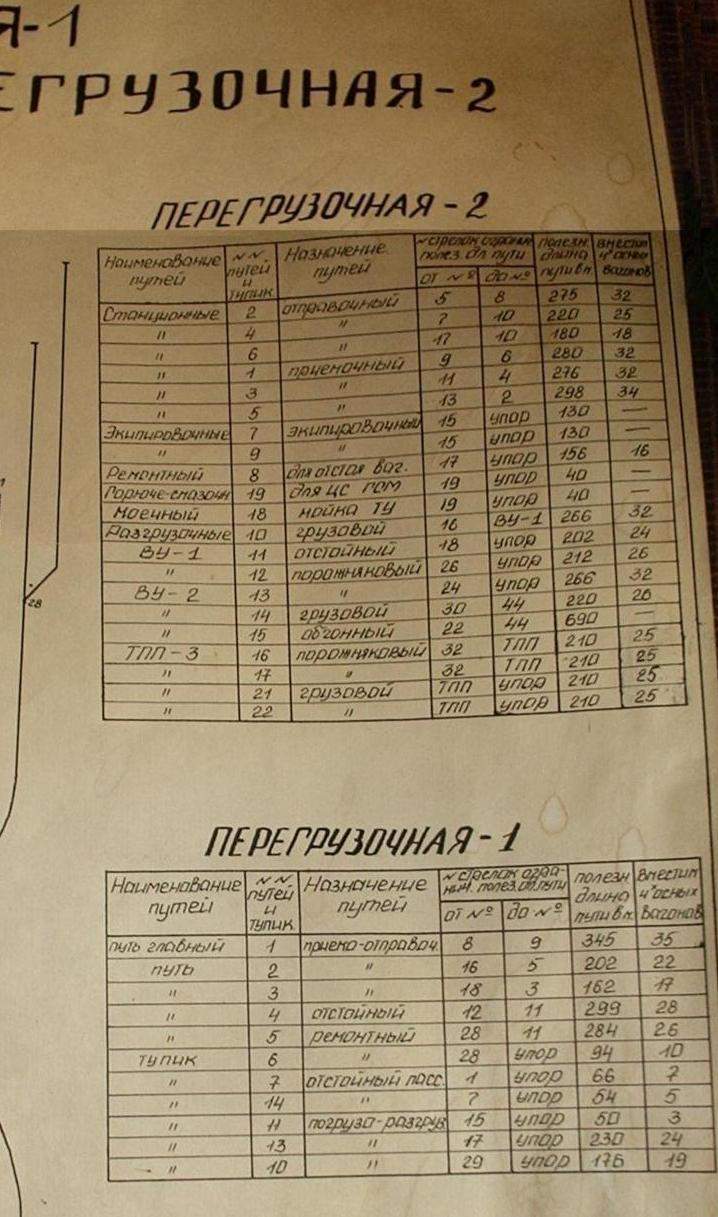 Я-1
ЕГРУЗОЧНАЯ-2
ПЕРЕГРУЗОЧНАЯ-2
Наименование путей №№ путей и тупик Назначение путей № стрелок огранич. полез. дл. пути от № до № полезн. длина пути в м. вместим 4х осных вагонов
Станционные 2 отправочный 5 8 275 32
" 4 " 7 10 220 25
" 6 " 17 10 180 18
" 1 приемочный 9 6 280 32
" 3 " 11 4 276 32
" 5 " 13 2 298 34
Экипировочные 7 экипировочный 15 упор 130 —
" 9 " 15 упор 130 —
Ремонтный 8 для отстоя ваг. 17 упор 156 16
Горюче-смазочн 19 для ЦС ГСМ 19 упор 40 —
Моечный 18 мойка ТУ 19 упор 40 —
Разгрузочные 10 грузовой 16 ВУ-1 266 32
ВУ-1 11 отстойный 18 упор 202 24
" 12 порожняковый 26 упор 212 26
ВУ-2 13 " 24 упор 266 32
" 14 грузовой 30 44 220 26
" 15 обгонный 22 44 690 —
ТПП-3 16 порожняковый 32 ТПП 210 25
" 17 " 32 ТПП 210 25
" 21 грузовой ТПП упор 210 25
" 22 " ТПП упор 210 25
ПЕРЕГРУЗОЧНАЯ-1
Наименование путей №№ путей и тупик Назначение путей № стрелок огранич. полез. дл. пути от № до № полезн длина пути в м. Вместим 4х осных вагонов
путь главный 1 приемо-отправоч. 8 9 345 35
путь 2 " 16 5 202 22
" 3 " 18 3 162 17
" 4 отстойный 12 11 299 28
" 5 ремонтный 28 11 284 26
тупик 6 " 28 упор 94 10
" 7 отстойный пасс. 1 упор 66 7
" 14 " 7 упор 54 5
" 11 погрузо-разгруз 15 упор 50 3
" 13 " 17 упор 230 24
" 10 " 29 упор 176 19
28